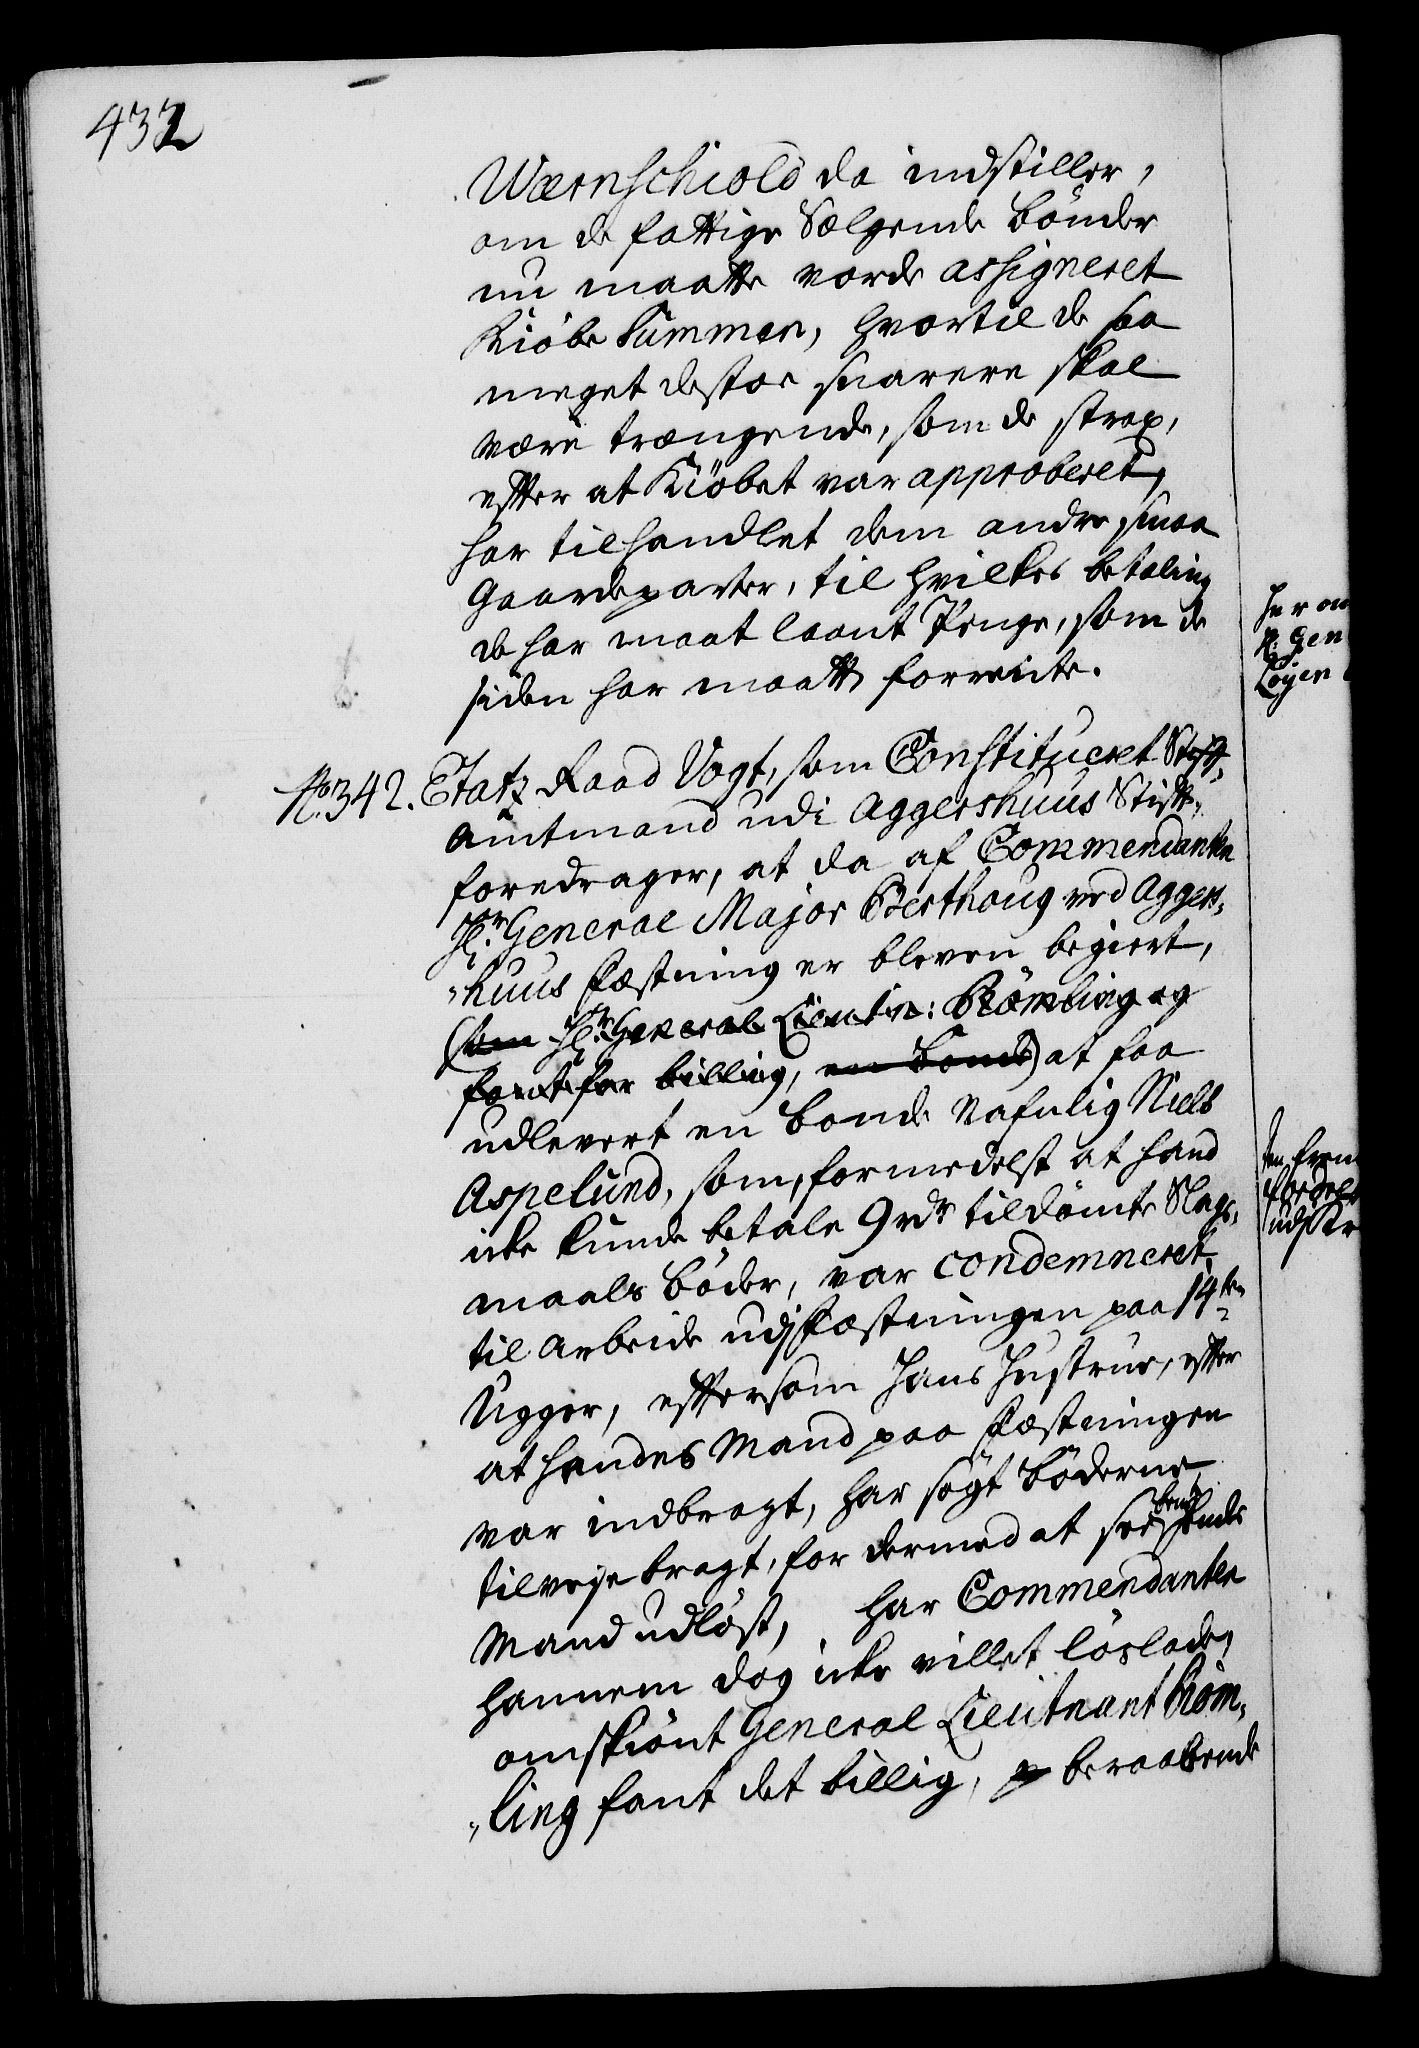 432
Wærnschiold da indstiller,
om de fattige Sælgende bönder
nu maatte vorde assigneret
Kiöbe Summen, hvortil de saa
meget destoe snarere skal
være trængende, som de strax,
efter at Kiöbet var approberet,
har tilhandlet dem andre smaa
Gaardeparter, til hvilkes betaling
de har maat laant Penge, som de
siden har maatt forrente.
No. 342. Etatz Raad Vogt, som Constitueret Stift
amtmand udi Aggershuus Stift,
foredrager, at da af Commendanten
Hl. General Major Berthoug ved Aggers„
„huus Fæstning er bleven begiert,
(som Hl. General Lieutn: Römling og
fandt for billig, en bonde) at faa
udlevert en bonde Nafnlig Niels
Aspelund, som, formedelst at hand
icke kunde betale 9 rdr tildömte Slags„
maals böder, var condemneret
til Arbeide udj Fæstningen paa 14ten
Uger, eftersom hans Hustrue, efter
at hendes Mand paa Fæstningen
var indbragt, har sögt böderne
tilveje bragt, for dermed at see hendes
Mand udlöst, har Commendanten
hannem dog icke villet löslade,
omskiönt General Lieutnant Röm„
„ling fant det billig, beraabende
her om
Gen
Löyen
udj